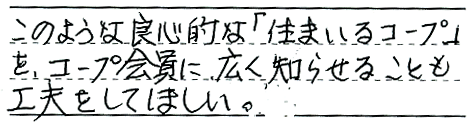 このような良心的な「住まいるコープ」
を、コープ会員に広く知らせることも
工夫をしてほしい。